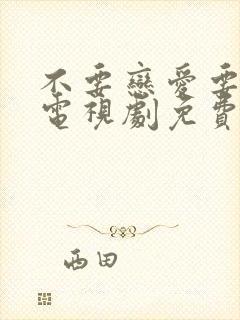 不要戀愛要
電視劇免費
西田